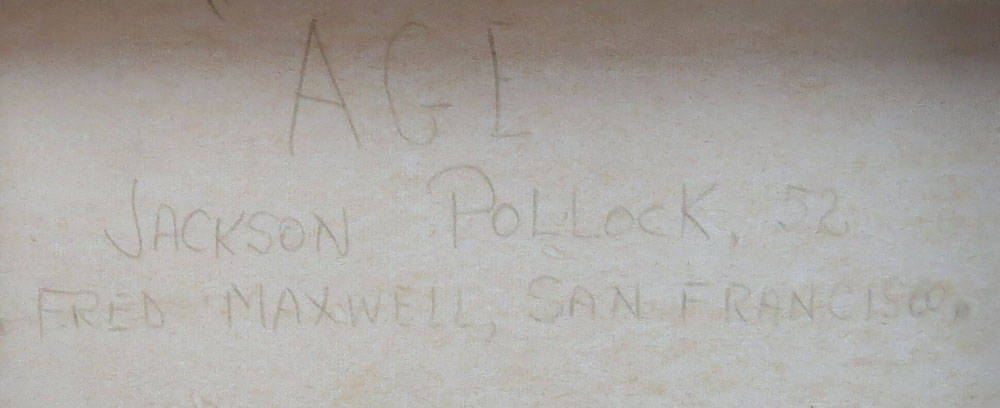 AGE
JACKSON POLLOCK, 52
FRED MAXWELL, SAN FRANCISCO.